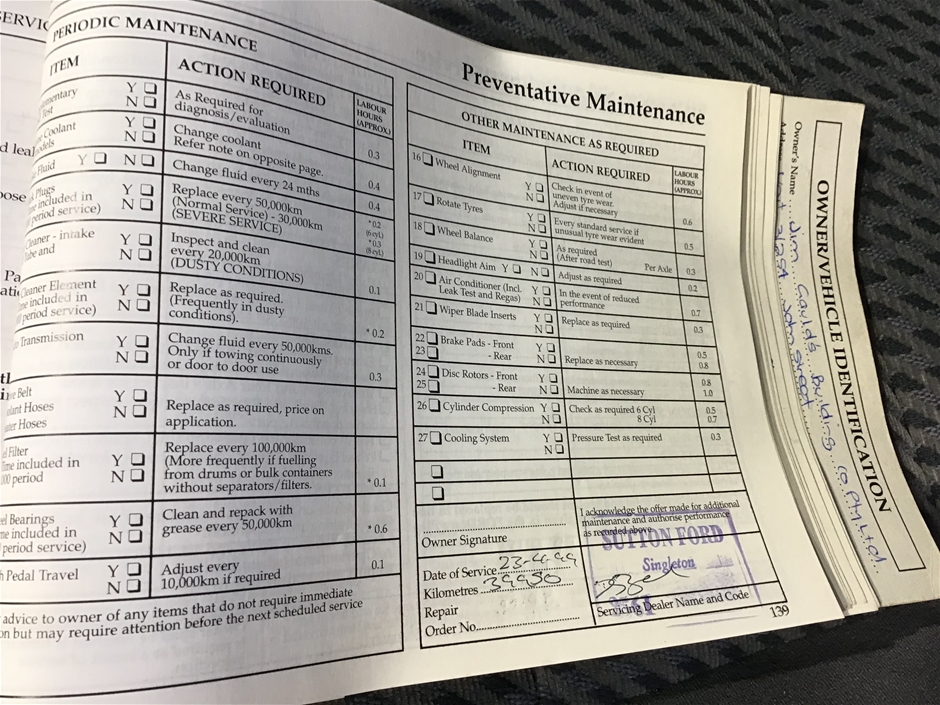 PERIODIC MAINTENANCE
ITEM
ACTION REQUIRED
LABOUR HOURS (APPROX.)
Y ❑
N ❑
As Required for
diagnosis/evaluation
Coolant
Y ❑
N ❑
Change coolant
Refer note on opposite page.
0.3
Fluid Y ❑ N ❑
Change fluid every 24 mths
0.4
Plugs
included in
period service)
Y ❑
N ❑
Replace every 50,000km
(Normal Service) - 30,000km
(SEVERE SERVICE)
0.4
*0.2
(6 cyl.)
*0.3
(8 cyl.)
- intake
and
Y ❑
N ❑
Inspect and clean
every 20,000km
(DUSTY CONDITIONS)
0.1
Cleaner Element
included in
period service)
Y ❑
N ❑
Replace as required.
(Frequently in dusty
conditions).
*0.2
Transmission
Y ❑
N ❑
Change fluid every 50,000kms.
Only if towing continuously
or door to door use
0.3
Belt
Hoses
Hoses
Y ❑
N ❑
Replace as required, price on
application.
Filter
included in
period
Y ❑
N ❑
Replace every 100,000km
(More frequently if fuelling
from drums or bulk containers
without separators/filters.
*0.1
Bearings
included in
period service)
Y ❑
N ❑
Clean and repack with
grease every 50,000km
*0.6
Pedal Travel
Y ❑
N ❑
Adjust every
10,000km if required
0.1
advice to owner of any items that do not require immediate
but may require attention before the next scheduled service
Preventative Maintenance
OTHER MAINTENANCE AS REQUIRED
ITEM
ACTION REQUIRED
LABOUR HOURS (APPROX.)
16 ❑ Wheel Alignment
Y ❑
N ❑
Check in event of
uneven tyre wear.
Adjust if necessary
0.6
17 ❑ Rotate Tyres
Y ❑
N ❑
Every standard service if
unusual tyre wear evident
0.5
18 ❑ Wheel Balance
Y ❑
N ❑
As required
(After road test) Per Axle
0.3
19 ❑ Headlight Aim Y ❑ N ❑
Adjust as required
0.2
20 ❑ Air Conditioner (Incl.
Leak Test and Regas)
Y ❑
N ❑
In the event of reduced
performance
0.7
21 ❑ Wiper Blade Inserts
Y ❑
N ❑
Replace as required
0.3
22 ❑ Brake Pads - Front
23 ❑ - Rear
Y ❑
N ❑
Replace as necessary
0.5
0.8
24 ❑ Disc Rotors - Front
25 ❑ - Rear
Y ❑
N ❑
Machine as necessary
0.8
1.0
26 ❑ Cylinder Compression
Y ❑
N ❑
Check as required 6 Cyl
8 Cyl
0.5
0.7
27 ❑ Cooling System
Y ❑
N ❑
Pressure Test as required
0.3
❑
❑
Owner Signature
I acknowledge the offer made for additional
maintenance and authorise performance
as recorded above.
SUTTON FORD
Singleton
Date of Service 23-4-99
Kilometres 39950
Repair
Order No.
Servicing Dealer Name and Code
139
OWNER/VEHICLE IDENTIFICATION
Owner's Name Jim Gauld's Building Co Pty Ltd.
John Street